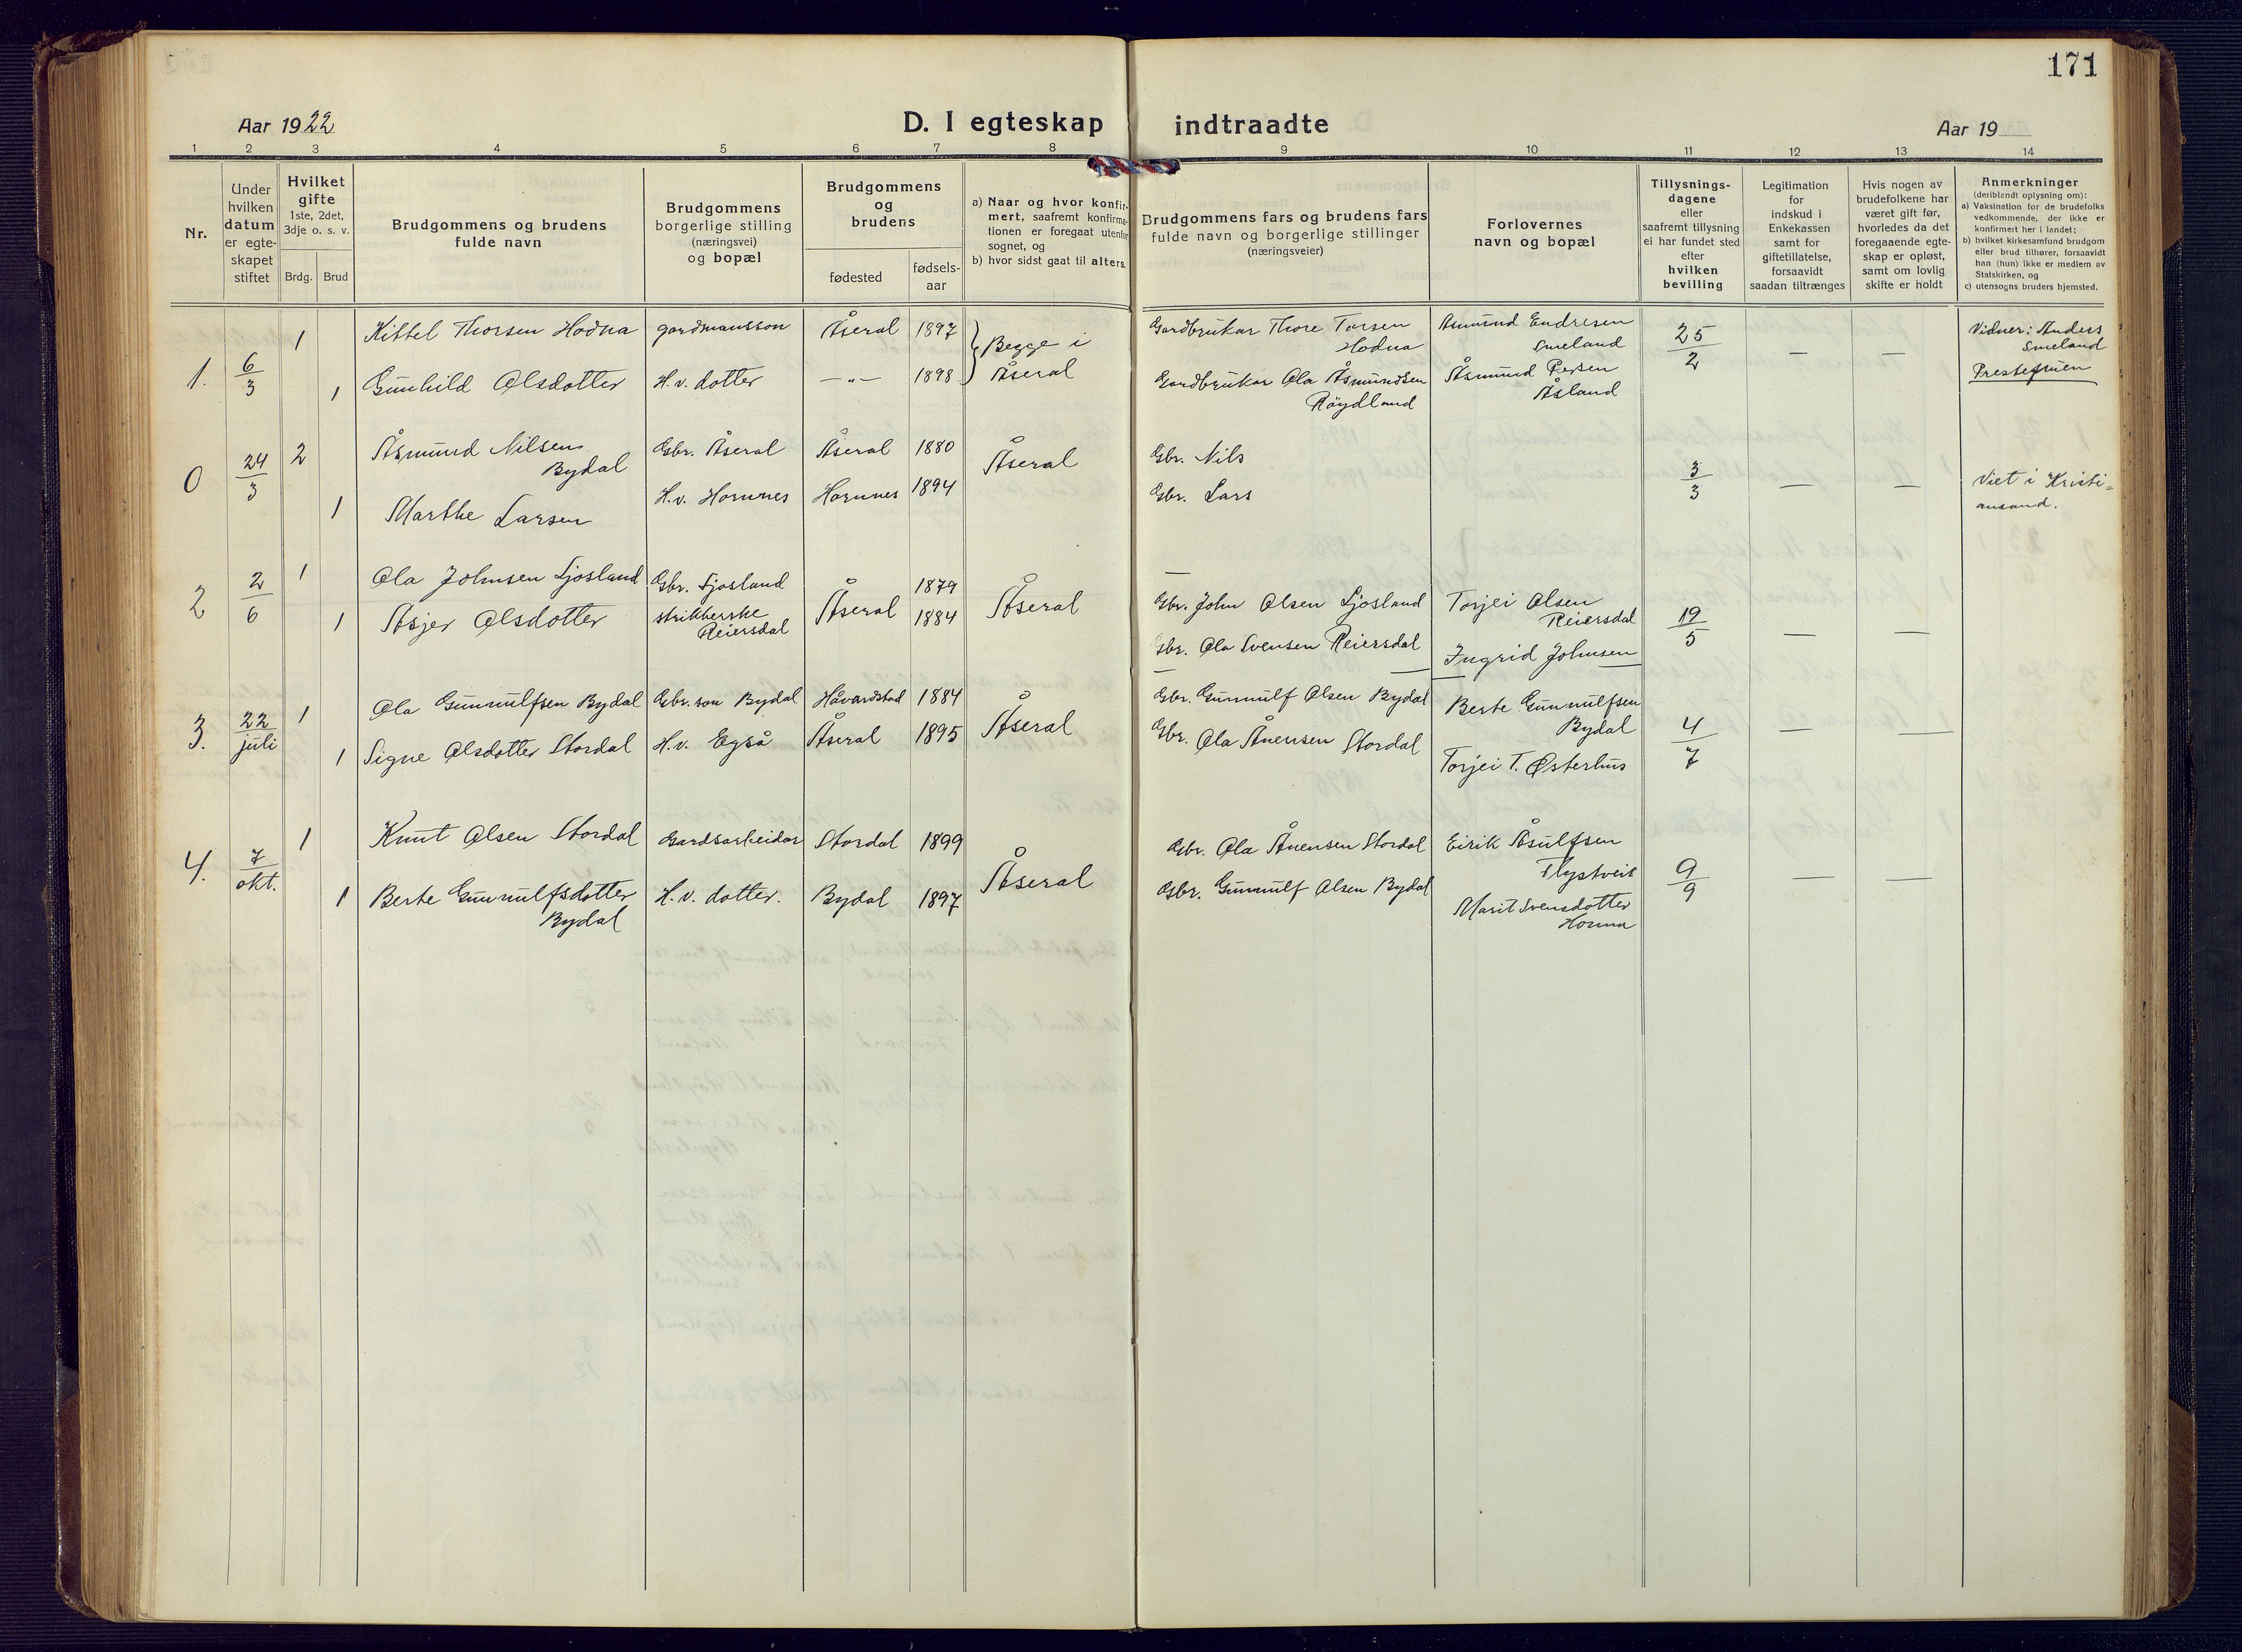 171
Aar 1922
D. I egteskap indtraadte
Aar 19
1 2 3 4 5 6 7 8 9 10 11 12 13 14
Nr.
Under
hvilken
datum
er egte-
skapet
stiftet
Hvilket
gifte
1ste, 2det,
3dje o. s. v.
Brdg. Brud
Brudgommens og brudens
fulde navn
Brudgommens
borgerlige stilling
(næringsvei)
og bopæl
Brudgommens
og
brudens
fødested
fødsels-
aar
a) Naar og hvor konfir-
mert, saafremt konfirma-
tionen er foregaat utenfor
sognet, og
b) hvor sidst gaat til alters.
Brudgommens fars og brudens fars
fulde navn og borgerlige stillinger
(næringsveier)
Forlovernes
navn og bopæl
Tillysnings-
dagene
eller
saafremt tillysning
ei har fundet sted
efter
hvilken
bevilling
Legitimation
for
indskud i
Enkekassen
samt for
giftetillatelse,
forsaavidt
saadan tiltrænges
Hvis nogen av
brudefolkene har
været gift før,
hvorledes da det
foregaaende egte-
skap er opløst,
samt om lovlig
skifte er holdt
Anmerkninger
(deriblandt oplysning om):
a) Vaksination for de brudefolks
vedkommende, der ikke er
konfirmert her i landet;
b) hvilket kirkesamfund brudgom
eller brud tilhører, forsaavidt
han (hun) ikke er medlem av
Statskirken, og
c) utensogns bruders hjemsted.
1. 6/3
1 Kittel Thorsen Hodna gardmansson Åseral 1897
1 Gunhild Olsdotter H.v. dotter —„— 1898
Begge i
Åseral
Gardbrukar Thore Torsen
Hodna
Gardbrukar Ola Åsmundsen
Røydland
Asmund Endresen
Smeland
Åsmund Persen
Åsland
25/2 — —
Vidner: Anders
Smeland
Prestefruen
0 24/3
2 Åsmund Nilsen
Bydal
Gbr. Åseral Åseral 1880
1 Marthe Larsen H.v. Hornnes Hornnes 1894
Åseral
Gbr. Nils
Gbr. Lars
3/3 — —
Viet i Kristi=
ansand.
2 2/6
1 Ola Johnsen Ljosland Gbr. Ljosland 1879
1 Asjer Olsdotter strikkerske
Reiersdal
Åseral 1884
Åseral
—
Gbr. John Olsen Ljosland
Gbr. Ola Svensen Reiersdal
Torjei Olsen
Reiersdal
Ingrid Johnsen
19/5 — —
3. 22/juli
1 Ola Gunnulfsen Bydal Gbr. son Bydal Håvardstad 1884
1 Signe Olsdotter Stordal H.v. Egså Åseral 1895
Åseral
Gbr. Gunnulf Olsen Bydal
Gbr. Ola Ånensen Stordal
Berte Gunnulfsen
Bydal
Torjei T. Østerhus
4/7 — —
4. 7/okt.
1 Knut Olsen Stordal Gardsarbeidar Stordal 1899
1 Berte Gunnulfsdotter
Bydal
H.v. dotter. Bydal 1897
Åseral
Gbr. Ola Ånensen Stordal
Gbr. Gunnulf Olsen Bydal
Eirik Åsulfsen
Flystveit
Marit Svensdotter
Honna
9/9 — —